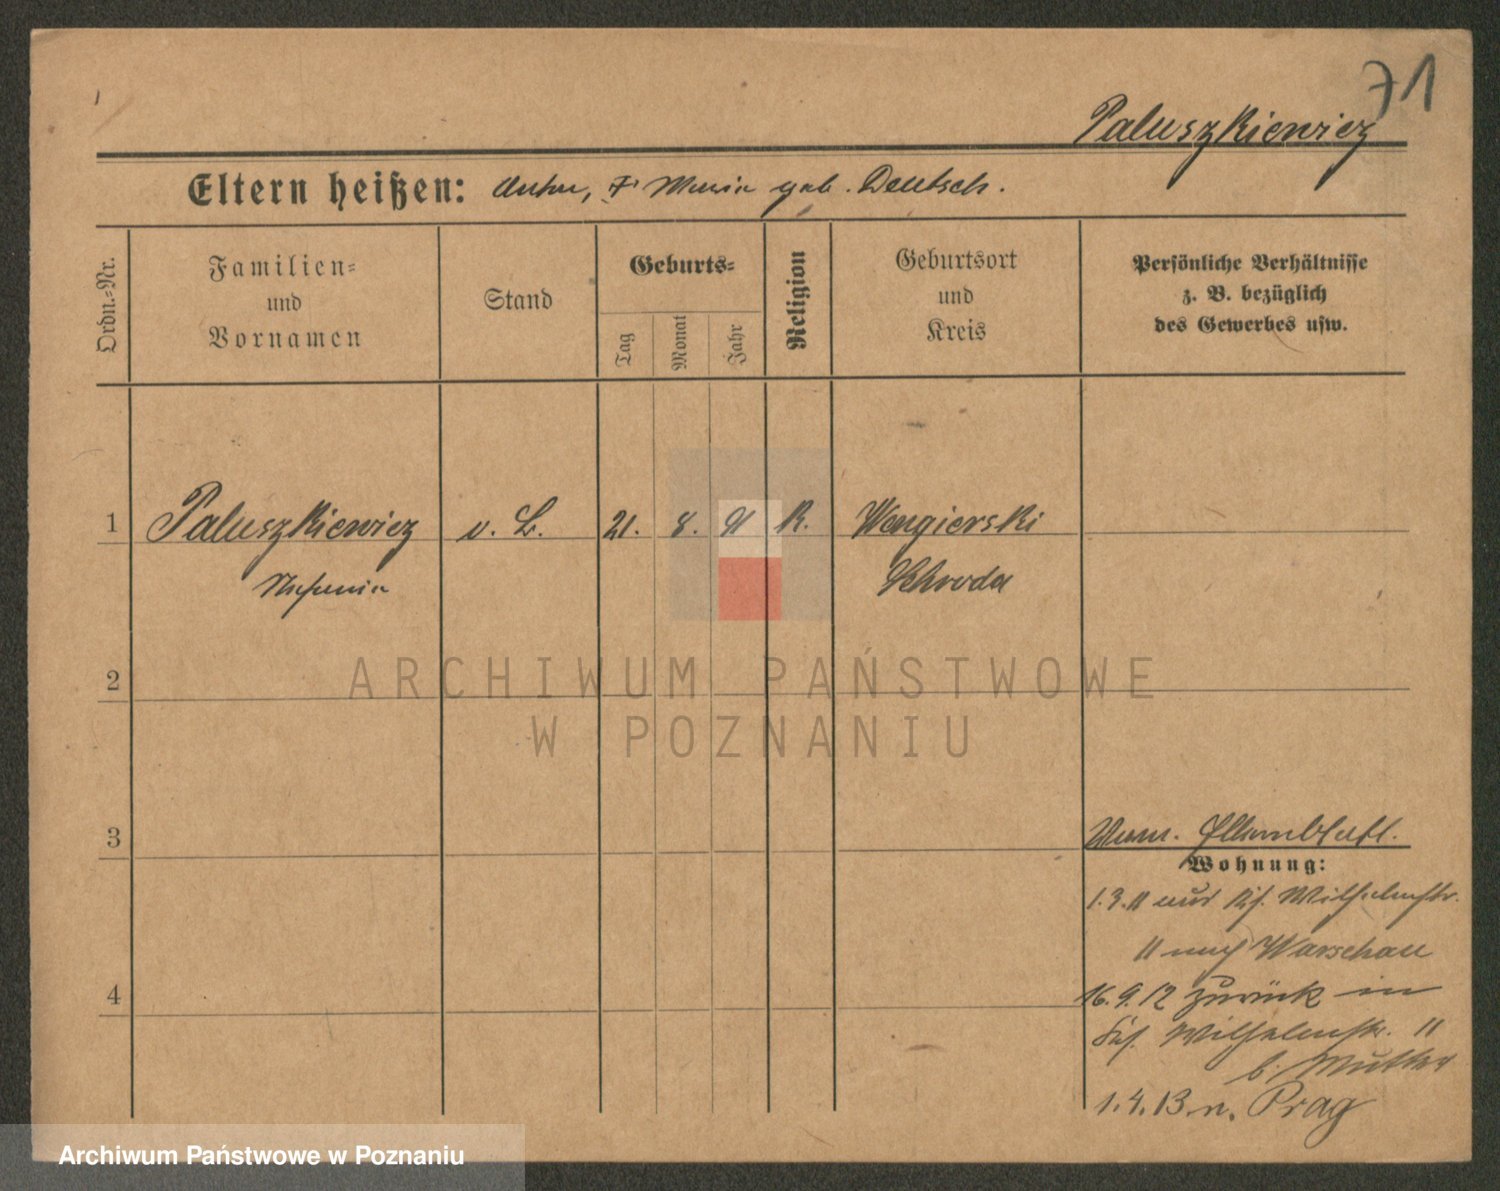 71
Paluszkiewicz
Eltern heißen: Anton, Maria geb. Deutsch.
Ordn.-Nr.
Familien-
und
Vornamen
Stand
Geburts-
Tag
Monat
Jahr
Religion
Geburtsort
und
Kreis
Persönliche Verhältnisse
z. B. bezüglich
des Gewerbes usw.
1 Paluszkiewicz v. L. 21. 8. 91 K. Wengierski
Schroda
2
ARCHIWUM PAŃSTWOWE
W POZNANIU
3
Wohnung:
1.3.11 Wilhelmstr.
11 nach Warschau
4
16.9.12 zurück in
Wilhelmstr. 11
b. Mutter
1.4.13 n. Prag
Archiwum Państwowe w Poznaniu